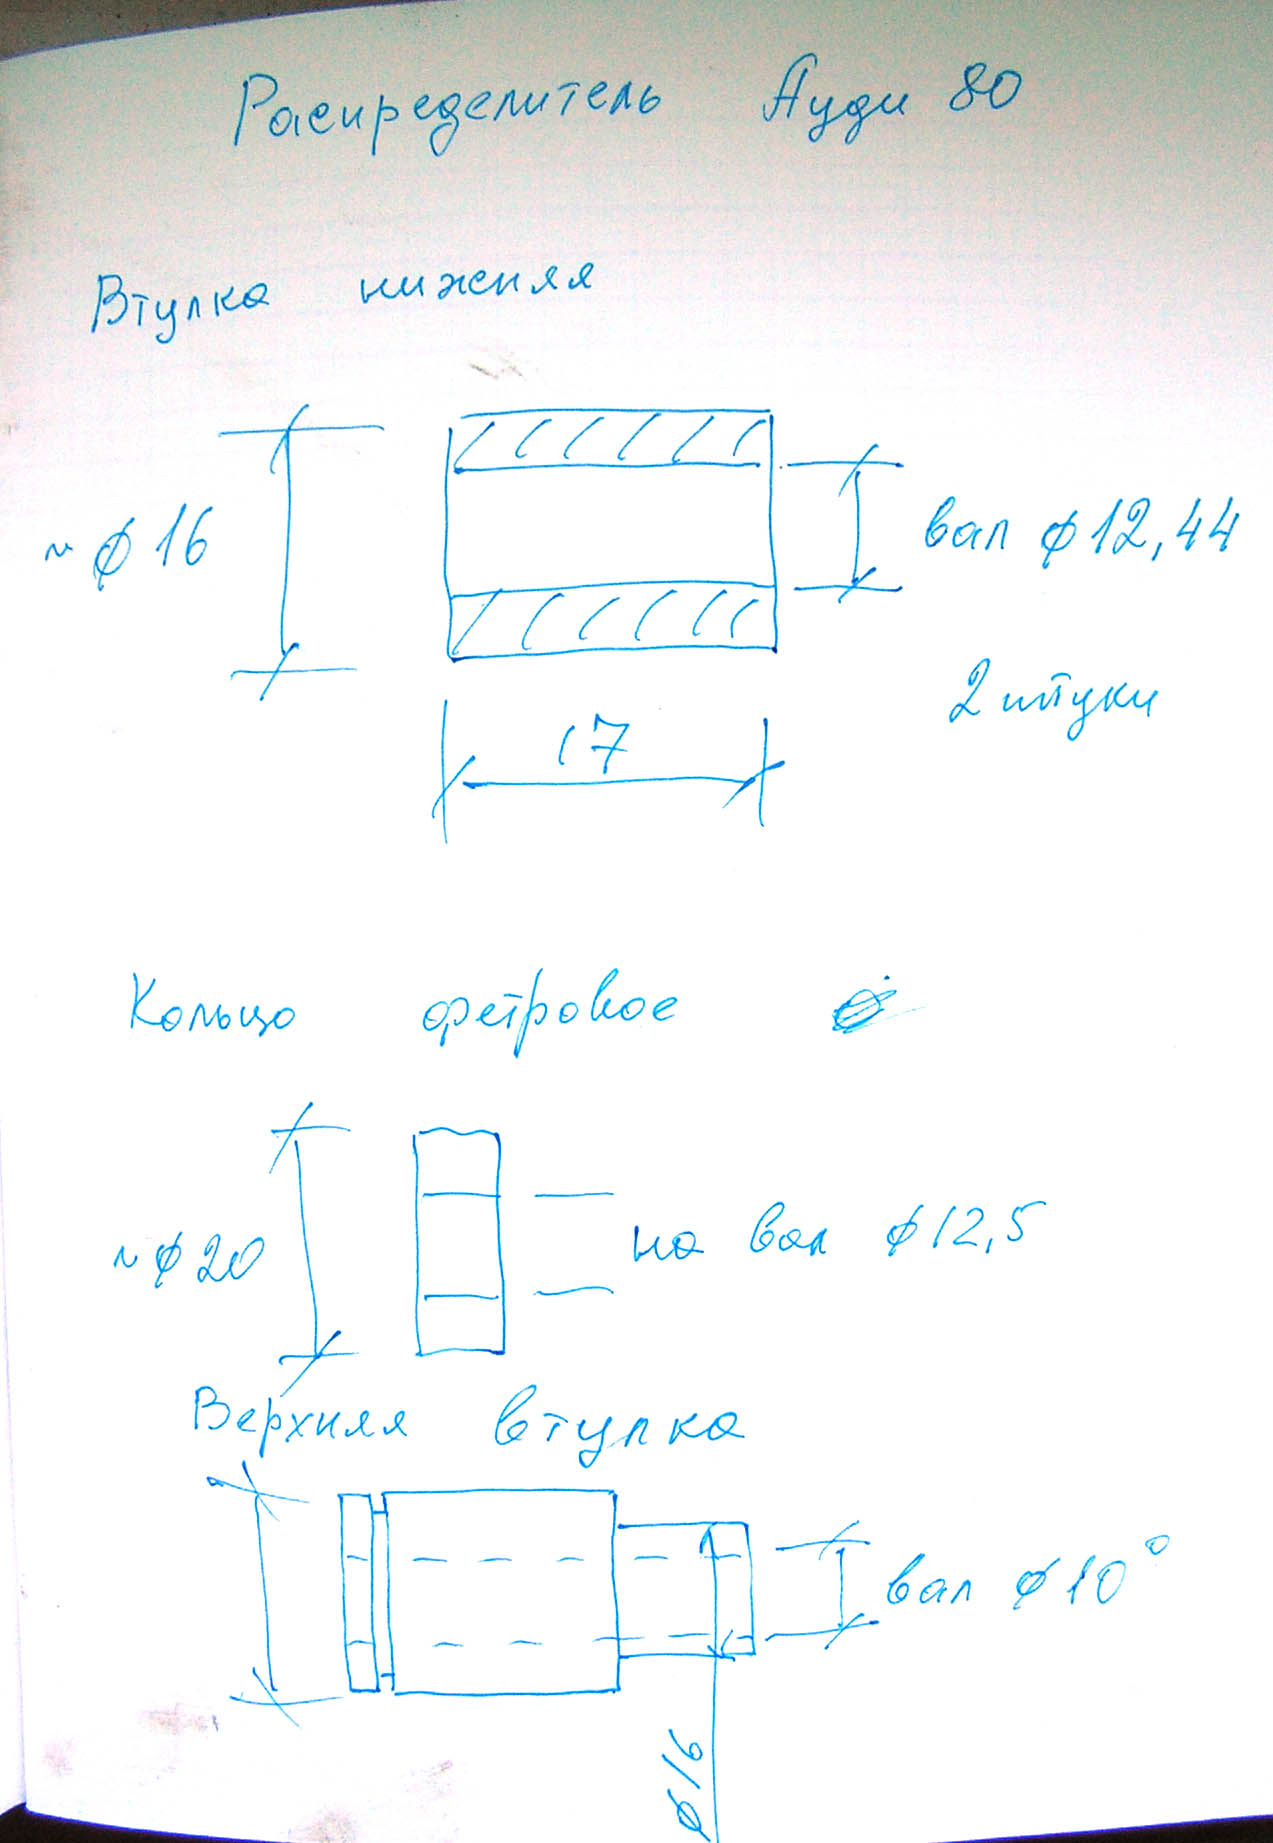 Распределитель Ауди 80
Втулка нижняя
~ ϕ 16
вал ϕ 12,44
2 штуки
17
Кольцо фетровое
~ ϕ 20
на вал ϕ 12,5
Верхняя втулка
вал ϕ 10°
ϕ 16